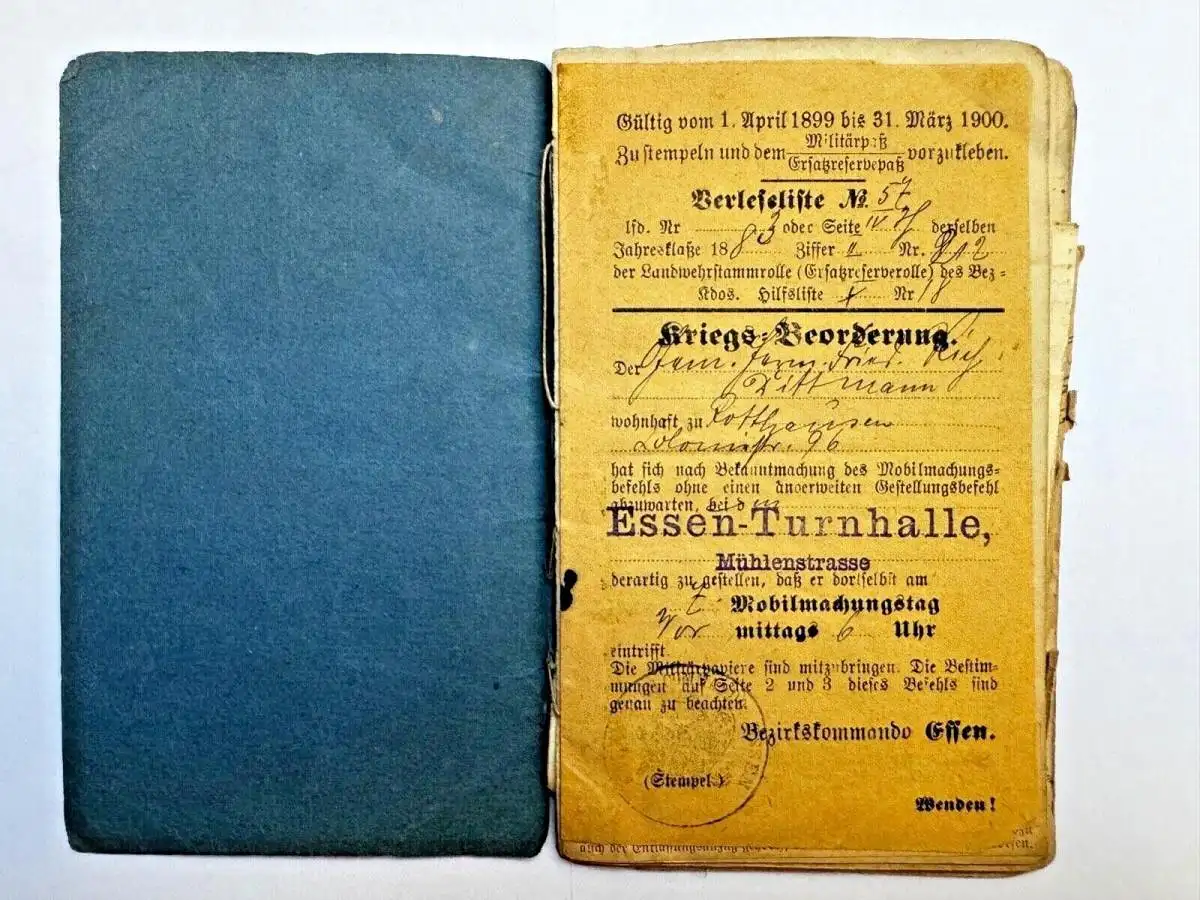 Gültig vom 1. April 1899 bis 31. März 1900.
Militärpaß
Zu stempeln und dem vorzukleben.
Ersatzreservepaß
Verlesliste No. 57
lfd. Nr 3 oder Seite IV derselben
Jahresklaße 188 Ziffer II Nr. 212
der Landwehrstammrolle (Ersatzreserverolle) des Bez-
Kdos. Hilfsliste Nr 18
Kriegs-Beorderung.
Der Fried.
Dittmann
wohnhaft zu Rotthausen
96
hat sich nach Bekanntmachung des Mobilmachungs-
befehls ohne einen anderweiten Gestellungsbefehl
abzuwarten, bei d
Essen-Turnhalle,
Mühlenstrasse
derartig zu gestellen, daß er dortselbst am
Mobilmachungstag
Vor mittags 6 Uhr
eintrifft
Die Militärpapiere sind mitzubringen. Die Bestim-
mungen auf Seite 2 und 3 dieses Befehls sind
genau zu beachten.
Bezirkskommando Essen.
(Stempel.)
Wenden!
auch der Entlassungsanzug